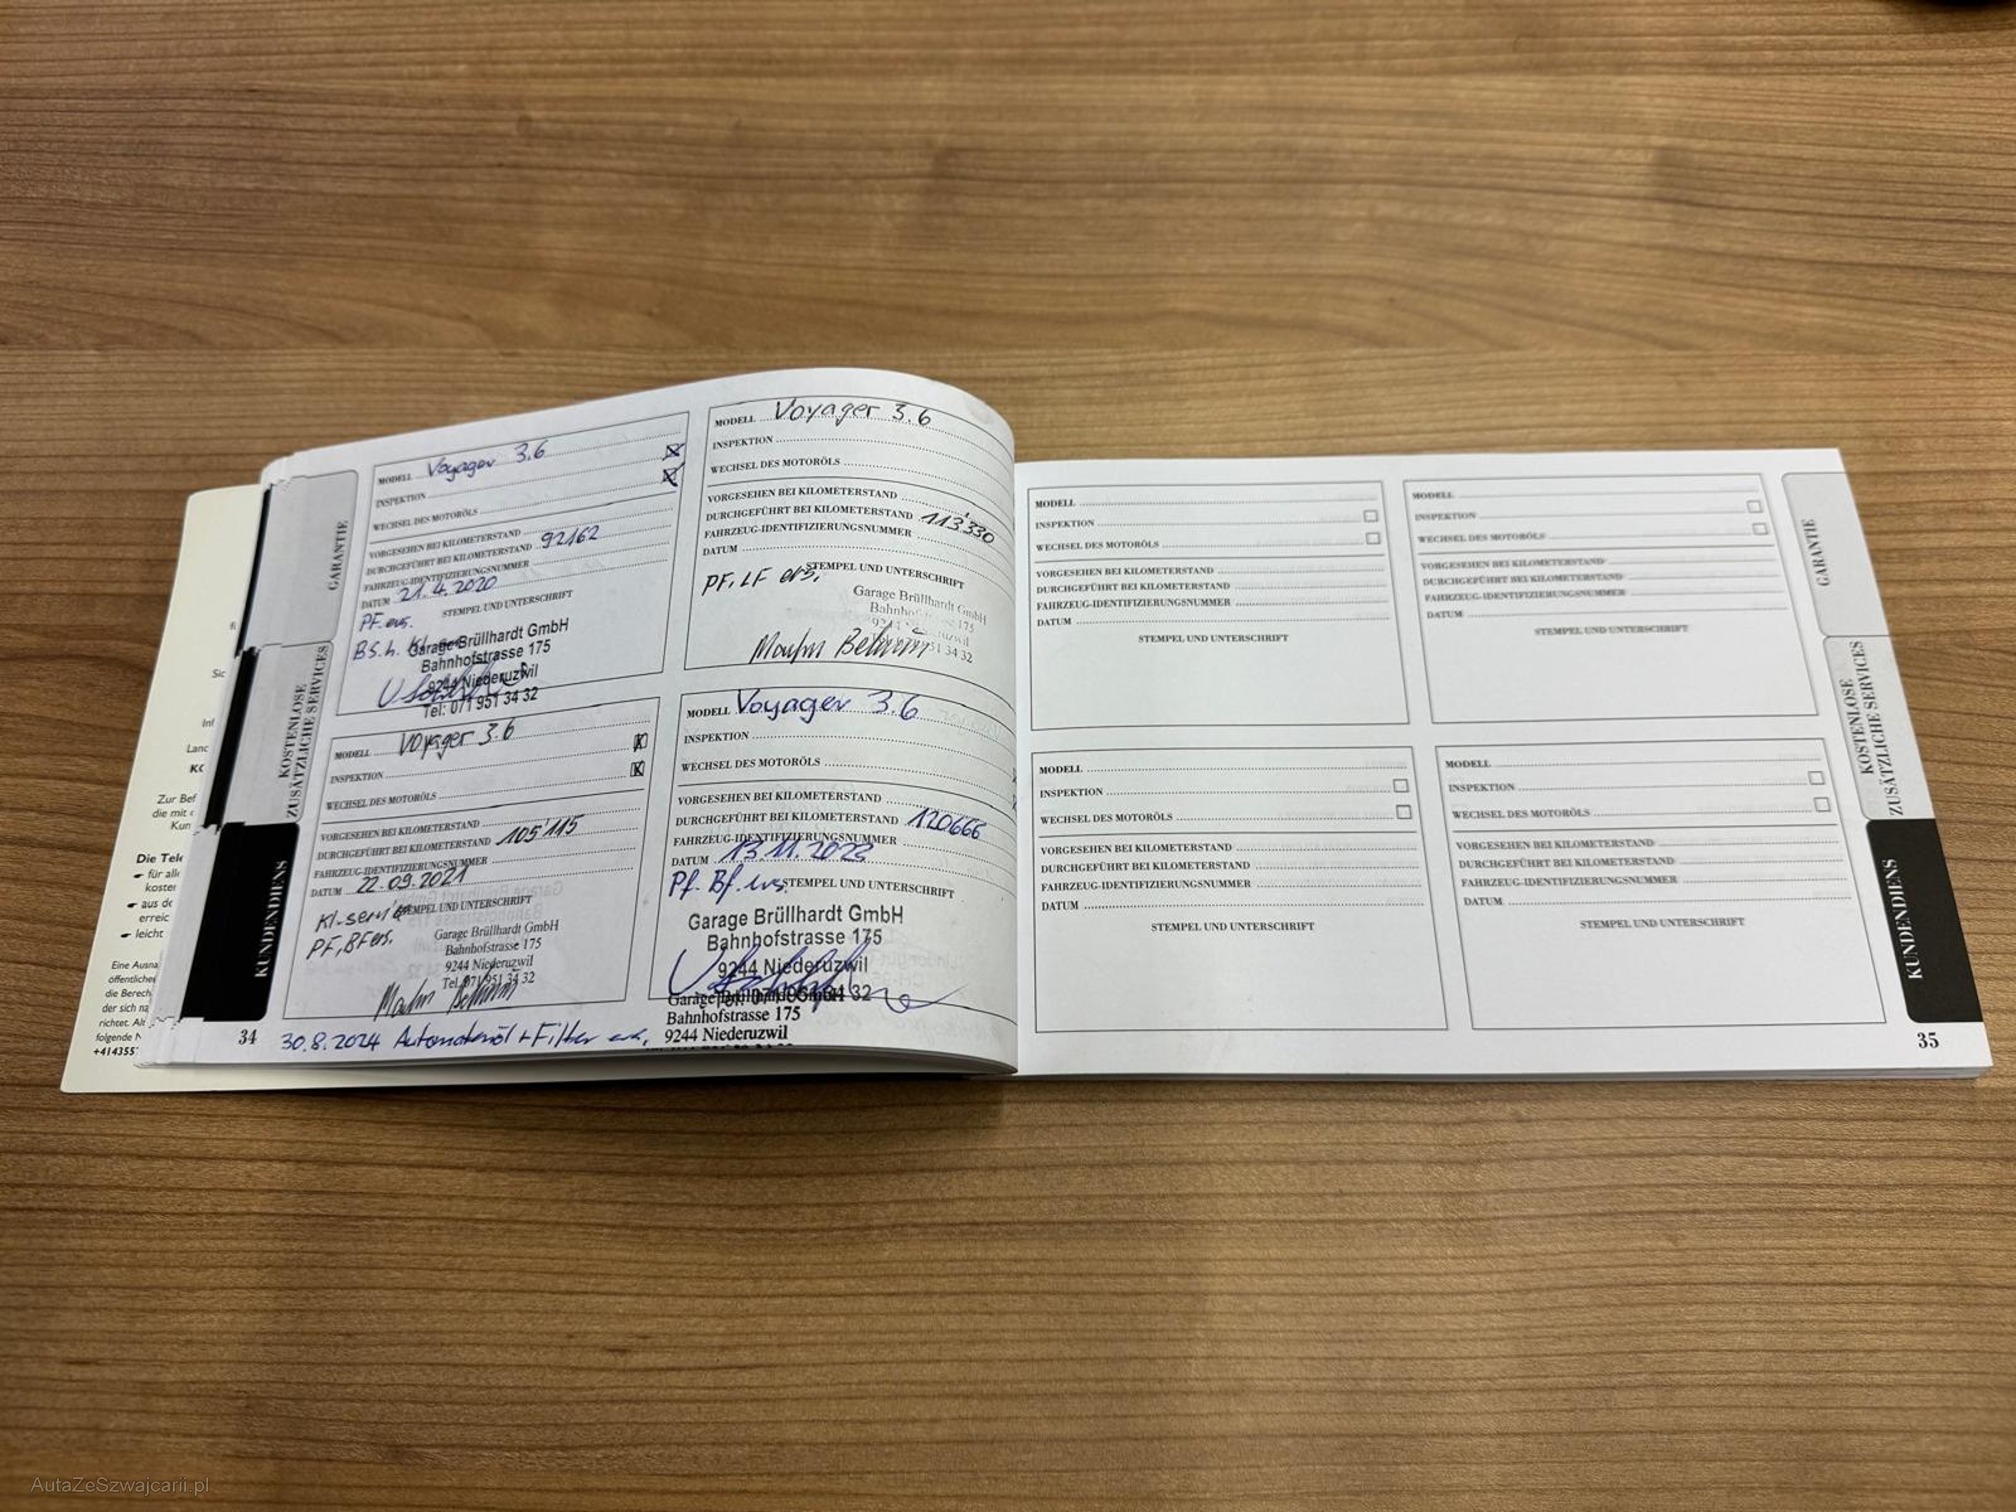 MODELL Voyager 3.6
INSPEKTION
WECHSEL DES MOTORÖLS
VORGESEHEN BEI KILOMETERSTAND
DURCHGEFÜHRT BEI KILOMETERSTAND 92162
FAHRZEUG-IDENTIFIZIERUNGSNUMMER
DATUM 21.4.2020
STEMPEL UND UNTERSCHRIFT
PF. ers.
Garage Brüllhardt GmbH
Bahnhofstrasse 175
9244 Niederuzwil
Tel: 071 951 34 32
MODELL Voyager 3.6
INSPEKTION
WECHSEL DES MOTORÖLS
VORGESEHEN BEI KILOMETERSTAND
DURCHGEFÜHRT BEI KILOMETERSTAND 113'330
FAHRZEUG-IDENTIFIZIERUNGSNUMMER
DATUM
STEMPEL UND UNTERSCHRIFT
PF, LF ers.
Garage Brüllhardt GmbH
MODELL Voyager 3.6
INSPEKTION
WECHSEL DES MOTORÖLS
VORGESEHEN BEI KILOMETERSTAND
DURCHGEFÜHRT BEI KILOMETERSTAND 105'115
FAHRZEUG-IDENTIFIZIERUNGSNUMMER
DATUM 22.09.2021
STEMPEL UND UNTERSCHRIFT
Kl-service
PF, BF ers.
Garage Brüllhardt GmbH
Bahnhofstrasse 175
9244 Niederuzwil
Tel. 071 951 34 32
MODELL Voyager 3.6
INSPEKTION
WECHSEL DES MOTORÖLS
VORGESEHEN BEI KILOMETERSTAND
DURCHGEFÜHRT BEI KILOMETERSTAND 120666
FAHRZEUG-IDENTIFIZIERUNGSNUMMER
DATUM 13.11.2023
Pf. Bf. ers. STEMPEL UND UNTERSCHRIFT
Garage Brüllhardt GmbH
Bahnhofstrasse 175
9244 Niederuzwil
Bahnhofstrasse 175
9244 Niederuzwil
30.8.2024 Automatenöl + Filter
34
GARANTIE
KOSTENLOSE
ZUSÄTZLICHE SERVICES
KUNDENDIENS
Zur Bef
die mit
Kun
Die Tele
für alle
aus de
erreic
leicht
Eine Ausna
öffentliche
die Berech
der sich na
folgende
MODELL
INSPEKTION
WECHSEL DES MOTORÖLS
VORGESEHEN BEI KILOMETERSTAND
DURCHGEFÜHRT BEI KILOMETERSTAND
FAHRZEUG-IDENTIFIZIERUNGSNUMMER
DATUM
STEMPEL UND UNTERSCHRIFT
MODELL
INSPEKTION
WECHSEL DES MOTORÖLS
VORGESEHEN BEI KILOMETERSTAND
DURCHGEFÜHRT BEI KILOMETERSTAND
FAHRZEUG-IDENTIFIZIERUNGSNUMMER
DATUM
STEMPEL UND UNTERSCHRIFT
MODELL
INSPEKTION
WECHSEL DES MOTORÖLS
VORGESEHEN BEI KILOMETERSTAND
DURCHGEFÜHRT BEI KILOMETERSTAND
FAHRZEUG-IDENTIFIZIERUNGSNUMMER
DATUM
STEMPEL UND UNTERSCHRIFT
MODELL
INSPEKTION
WECHSEL DES MOTORÖLS
VORGESEHEN BEI KILOMETERSTAND
DURCHGEFÜHRT BEI KILOMETERSTAND
FAHRZEUG-IDENTIFIZIERUNGSNUMMER
DATUM
STEMPEL UND UNTERSCHRIFT
GARANTIE
KOSTENLOSE
ZUSÄTZLICHE SERVICES
KUNDENDIENS
35
AutaZeSzwajcarii.pl